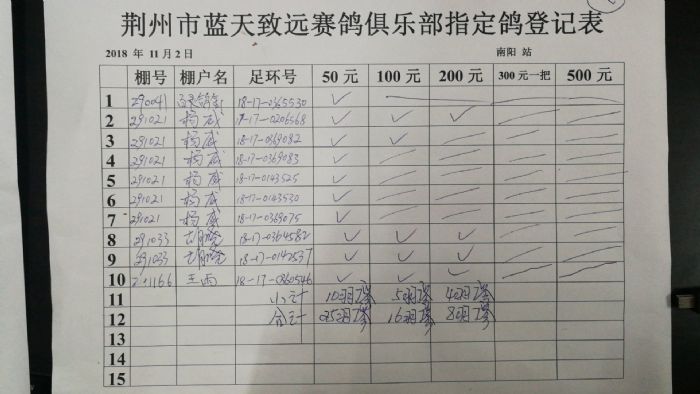 荆州市蓝天致远赛鸽俱乐部指定鸽登记表
2018 年 11 月 2 日 南阳 站
棚号 棚户名 足环号 50 元 100 元 200 元 300 元一把 500 元
1 290041 18-17-0365530 ✓
2 291021 杨威 17-0206568 ✓ ✓ ✓
3 291021 杨威 18-17-0369082 ✓ ✓
4 291021 杨威 18-17-0369083 ✓
5 291021 杨威 18-17-0143525 ✓
6 291021 杨威 18-17-0143530 ✓
7 291021 杨威 18-17-0369075 ✓
8 291033 18-17-0364582 ✓ ✓ ✓
9 291033 18-17-0142537 ✓ ✓ ✓
10 王雨 18-17-0360546 ✓ ✓ ✓
11 小计 10羽 5羽 4羽
12 合计 16羽 8羽
13
14
15